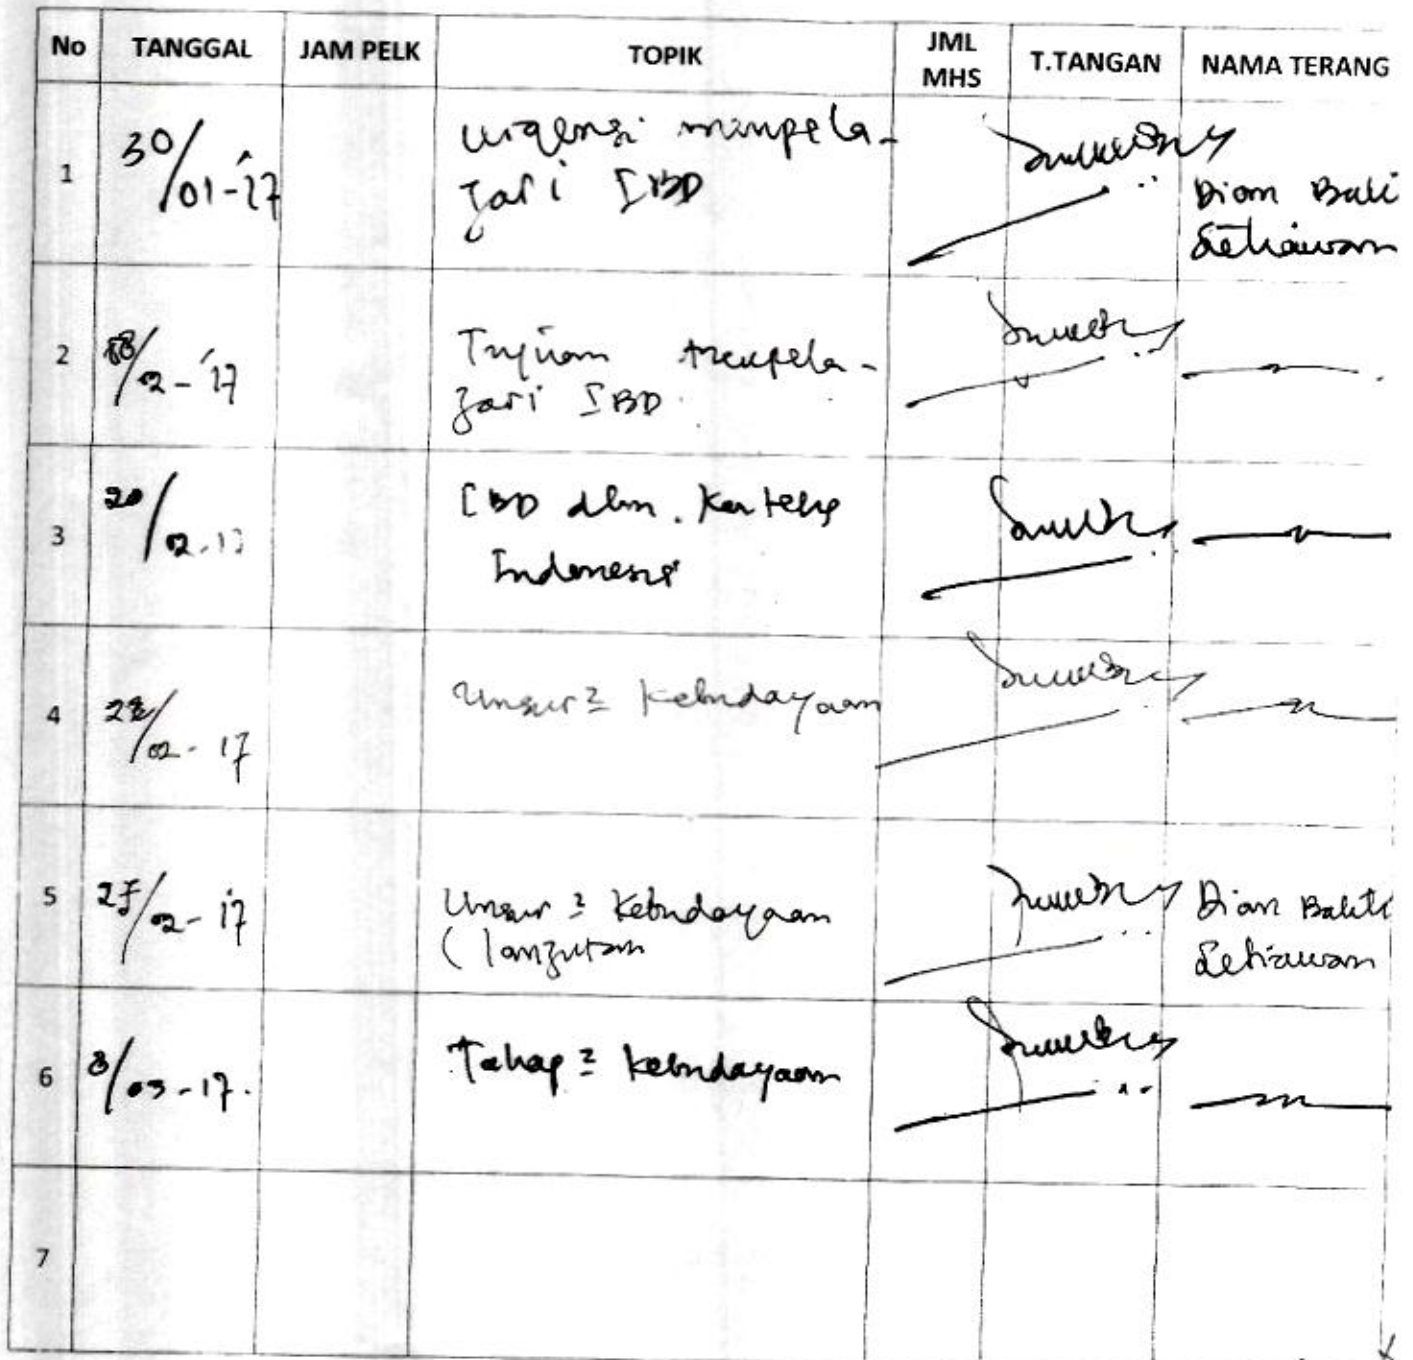 No TANGGAL JAM PELK TOPIK JML MHS T.TANGAN NAMA TERANG
1 30/01-'17 urgensi mempela-
jari IBD
Dian Bakti
Setiawan
2 /02-'17 Tujuan mempela-
jari IBD
3 20/02-17 IBD dlm. Konteks
Indonesia
4 /02-17 Unsur2 Kebudayaan
5 27/02-17 Unsur2 Kebudayaan
(lanjutan
Dian Bakti
Setiawan
6 8/03-17. Tahap2 Kebudayaan
7